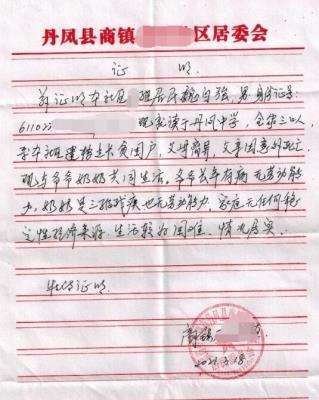 丹凤县商镇 区居委会
证 明
兹证明本社区 组居民魏自强,男,身份证号:
611022 现就读于丹凤中学,全家三口人,
系本社区建档立卡贫困户,父母离异,父亲因意外死亡
现与爷爷奶奶共同生活。爷爷长年有病无劳动能
力,奶奶是三级残疾也无劳动能力,家庭无任何稳
定性经济来源,生活较为困难,情况属实。
特此证明。
商镇